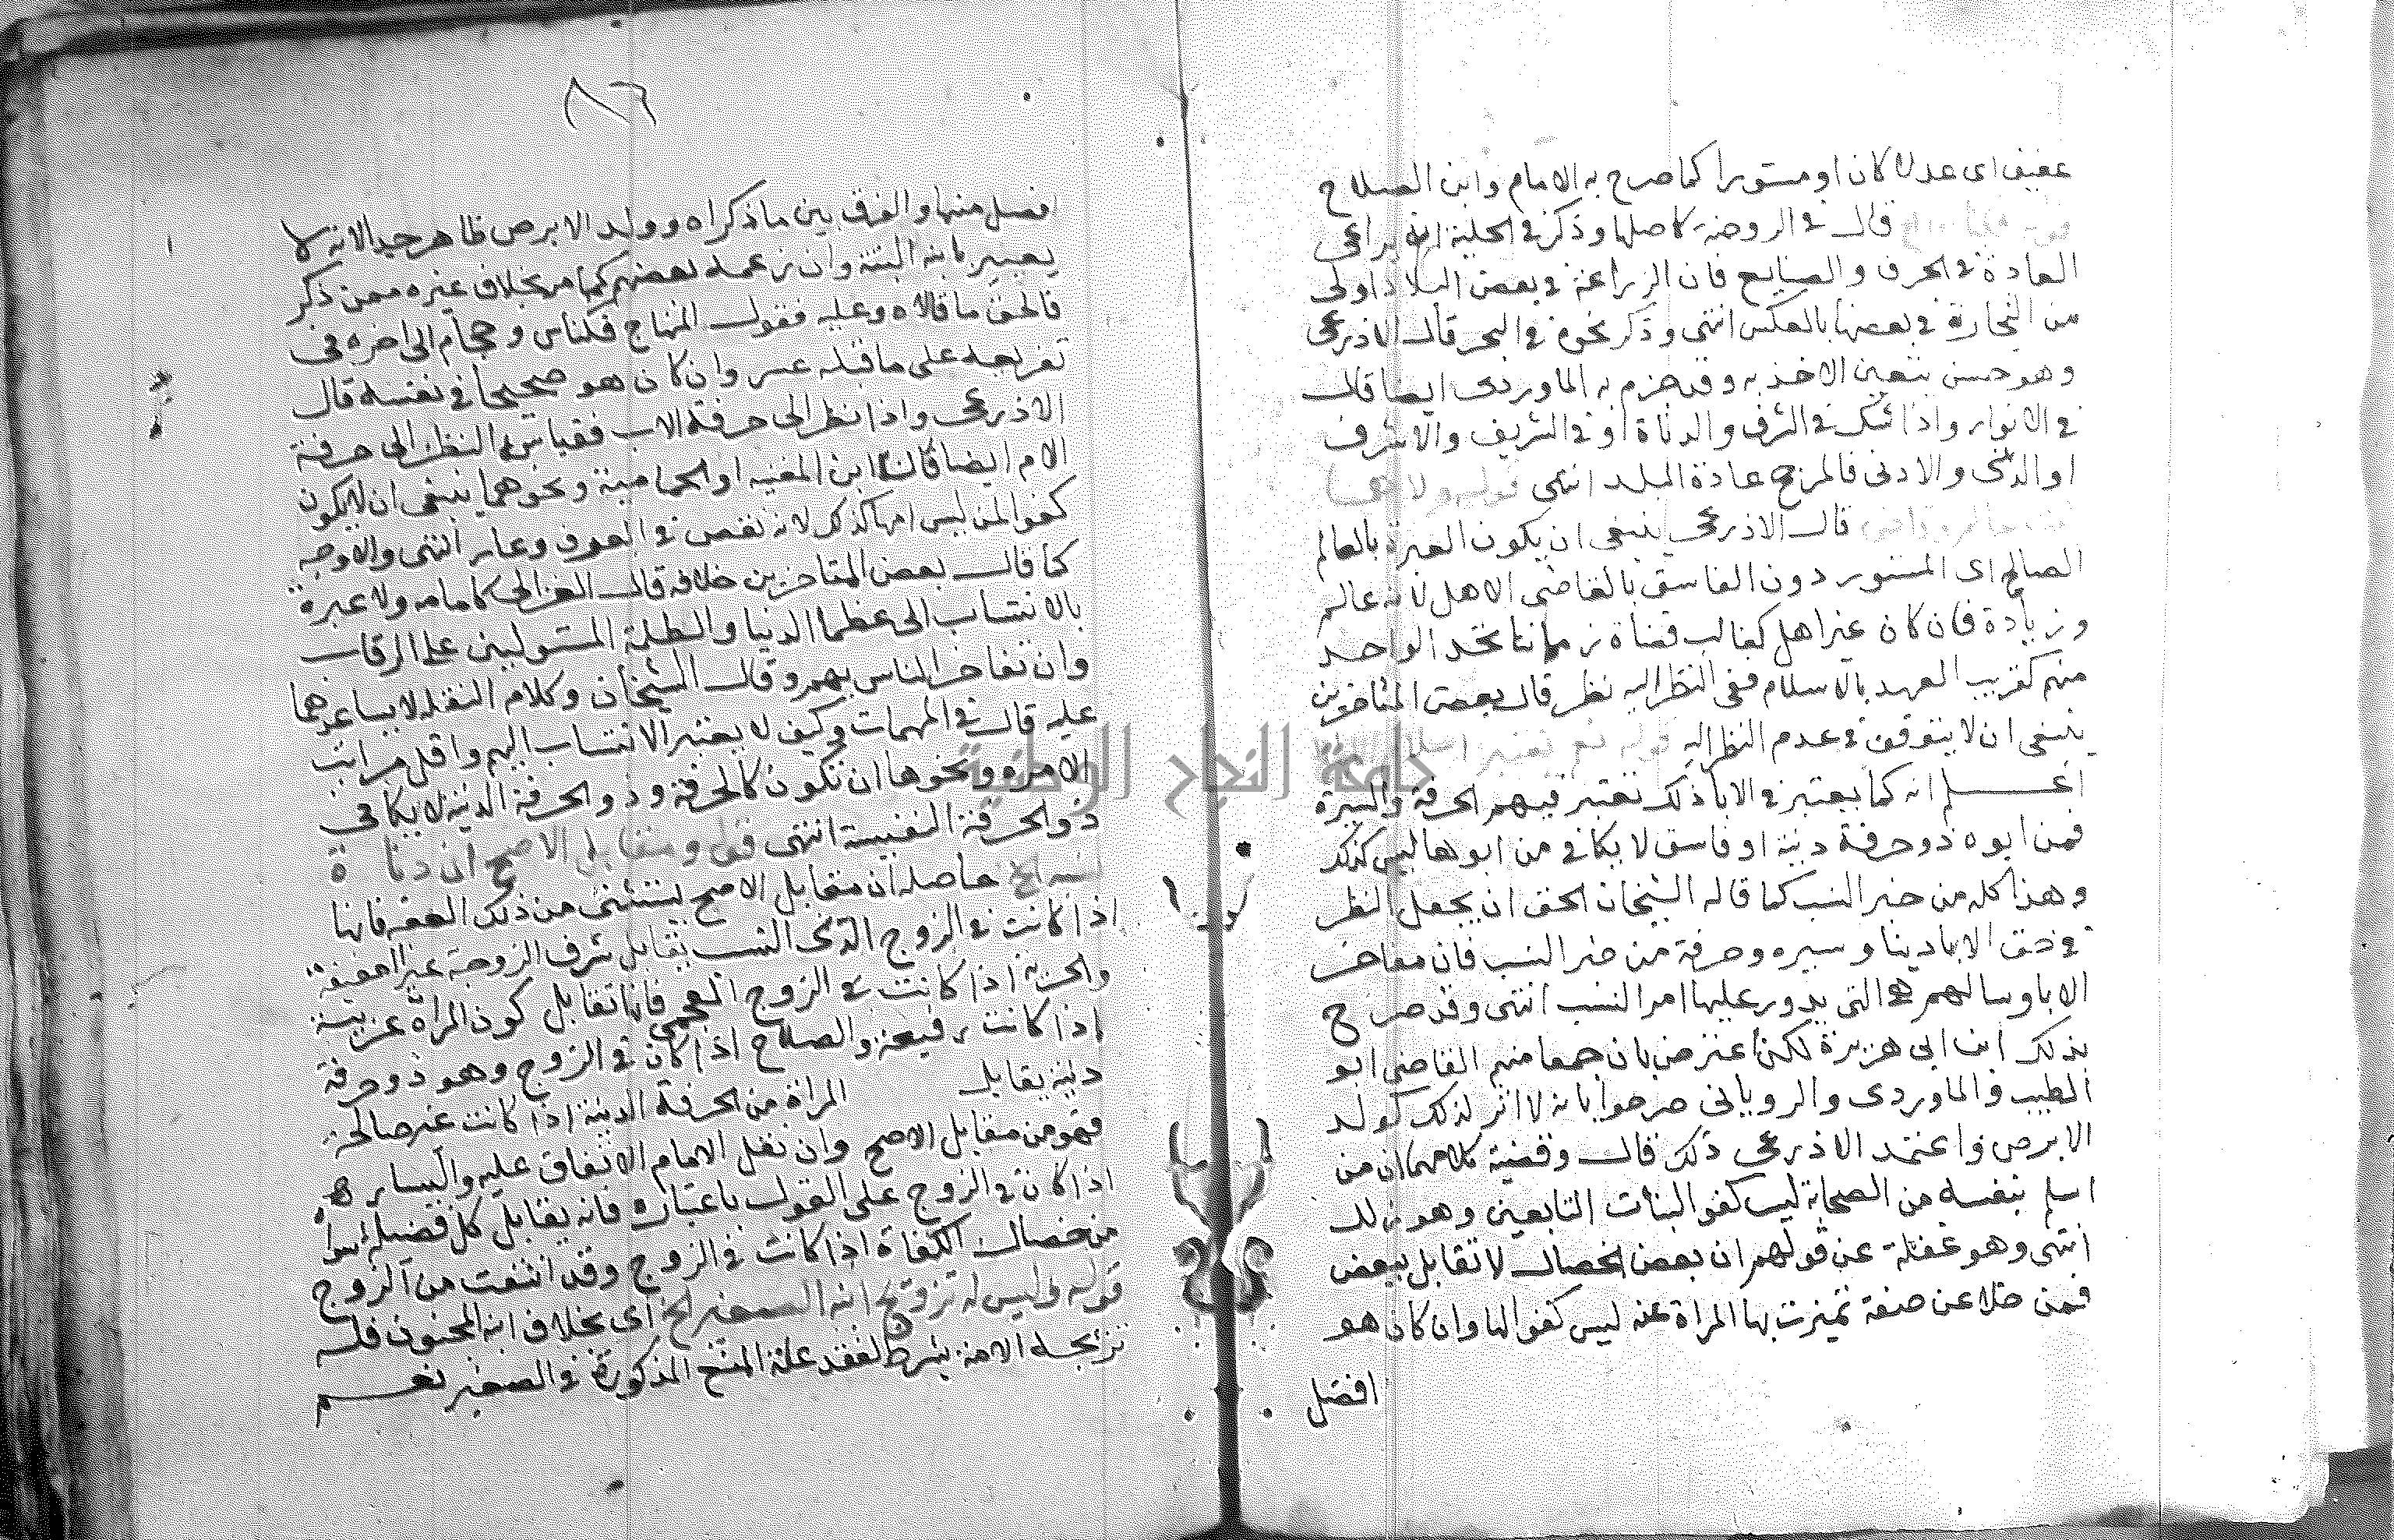 عفيف اى عدلا كان او مستورا كما صرح به الامام وابن الصلاح
قال في الروضة كاصلها وذكر في الحلية انه يراعى
العادة في الحرف والصنايع فان الزراعة في بعض البلاد اولى
من التجارة في بعضها بالعكس انتهى وذكر نحوه في البحر قال الاذرعى
وهو حسن يتعين الاخذ به وقد جزم به الماوردى ايضا قال
في الانوار واذا شك في الشرف والدناة او في الشريف والاشرف
او الدنى والادنى فالمرجع عادة البلد انتهى قوله ولا
قال الاذرعى ينبغى ان يكون العبرة بالعالم
الصالح اى المستور دون الفاسق بالقاضى الاهل لانه عالم
وزيادة فان كان غير اهل كغالب قضاة زماننا تجد الواحد
منهم كقريب العهد بالاسلام ففى النظر اليه نظر قال بعض المتاخرين
ينبغى ان لا يتوقف في عدم النظر اليه قوله نعم تعتبر اسلام
اعلم انه كما يعتبر في الابا ذلك تعتبر فيهم الحرفة والسيرة
فمن ابوه ذو حرفة دنية او فاسق لا يكافى من ابوها ليس كذلك
وهذا كله من حيز النسب كما قاله الشيخان الحق ان يجعل النظر
في حق الابا دينا وسيره وحرفة من حيز النسب فان مفاخر
الابا ومثالبهم هى التى يدور عليها امر النسب انتهى وقد صرح
بذلك ابن ابى هريرة لكن اعترض بان جمعا منهم القاضى ابو
الطيب والماوردى والرويانى صرحوا بانه لا اثر لذلك كولد
الابرص واعتمد الاذرعى ذلك قال وقضية كلامهما ان من
اسلم بنفسه من الصحابة ليس كفو البنات التابعين وهو زلل
انتهى وهو غفلة عن قولهم ان بعض الخصال لا تقابل ببعض
فمن خلا عن صفة تميزت بها المراة عنه ليس كفوا لها وان كان هو
افضل
٨٦
افضل منها والفرق بين ما ذكراه وولد الابرص ظاهر جيد الانه لا
يعير بابنه البتة وان زعمه بعضهم كما مر بخلاف غيره ممن ذكر
فالحق ما قالاه وعليه فقول المنهاج فكناس وحجام الى اخره في
تفريعه على ما قبله عسر وان كان هو صحيحا في نفسه قال
الاذرعى واذا نظر الى حرفة الاب فقياسه النظر الى حرفة
الام ايضا قال ابن المغنيه او الحمامية ونحوهما ينبغى ان لا يكون
كفوا لمن ليس امها كذلك لانه نقص في العرف وعار انتهى والاوجه
كما قال بعض المتاخرين خلافه قال الغزالى كامامه ولا عبرة
بالانتساب الى عظما الدنيا والظلمة المستولين على الرقاب
وان تفاخر الناس بهم وقال الشيخان وكلام النقلة لا يساعدهما
عليه قال في المهمات وكيف لا يعتبر الانتساب اليهم واقل مراتب
الامره ونحوها ان تكون كالحرفة وذو الحرفة الدنية لا يكافى
ذو الحرفة النفيسة انتهى قوله ومقابل الاصح ان دناة
نسبه الخ حاصله ان مقابل الاصح يستثنى من ذلك العفه فانها
اذا كانت في الزوج الدنى النسب يقابل شرف الزوجة غير العفيفة
والحرية اذا كانت في الزوج العجمى فانها تقابل كون المراة عربية
اذا كانت رقيقة والصلاح اذا كان في الزوج وهو ذو حرفة
دنية يقابل المراة من الحرفة الدنية اذا كانت غير صالحة
فهو من مقابل الاصح وان نقل الامام الاتفاق عليه واليسار
اذا كان في الزوج على القول باعتباره فانه يقابل كل فضيلة
من خصال الكفاة اذا كانت في الزوج وقد انتفت من الزوج
قوله وليس له تزويج ابنه الصغير الخ اى بخلاف ابنه المجنون فله
تزيجه الامة بشرطه لفقد علة المنع المذكورة في الصغير نعم
جامعة النجاح الوطنية